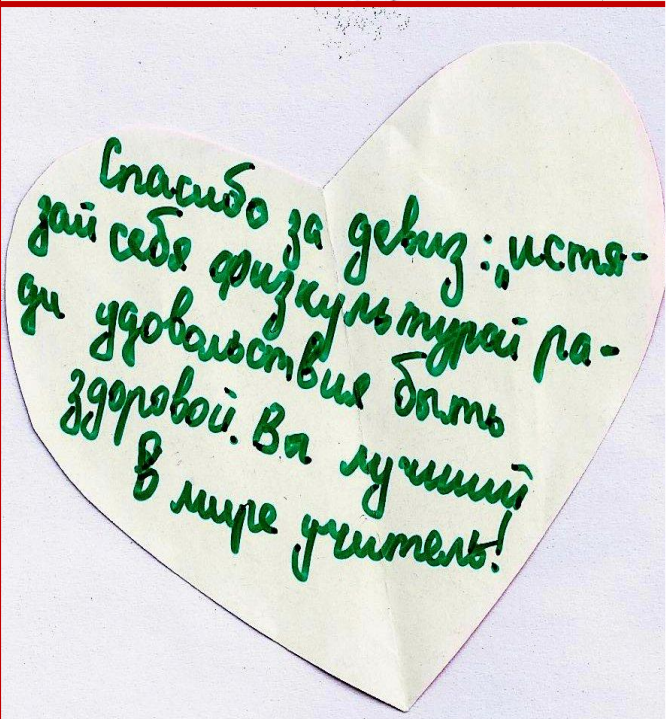 Спасибо за девиз: „истя-
зай себя физкультурой ра-
ди удовольствия быть
здоровой. Вы лучший
в мире учитель!